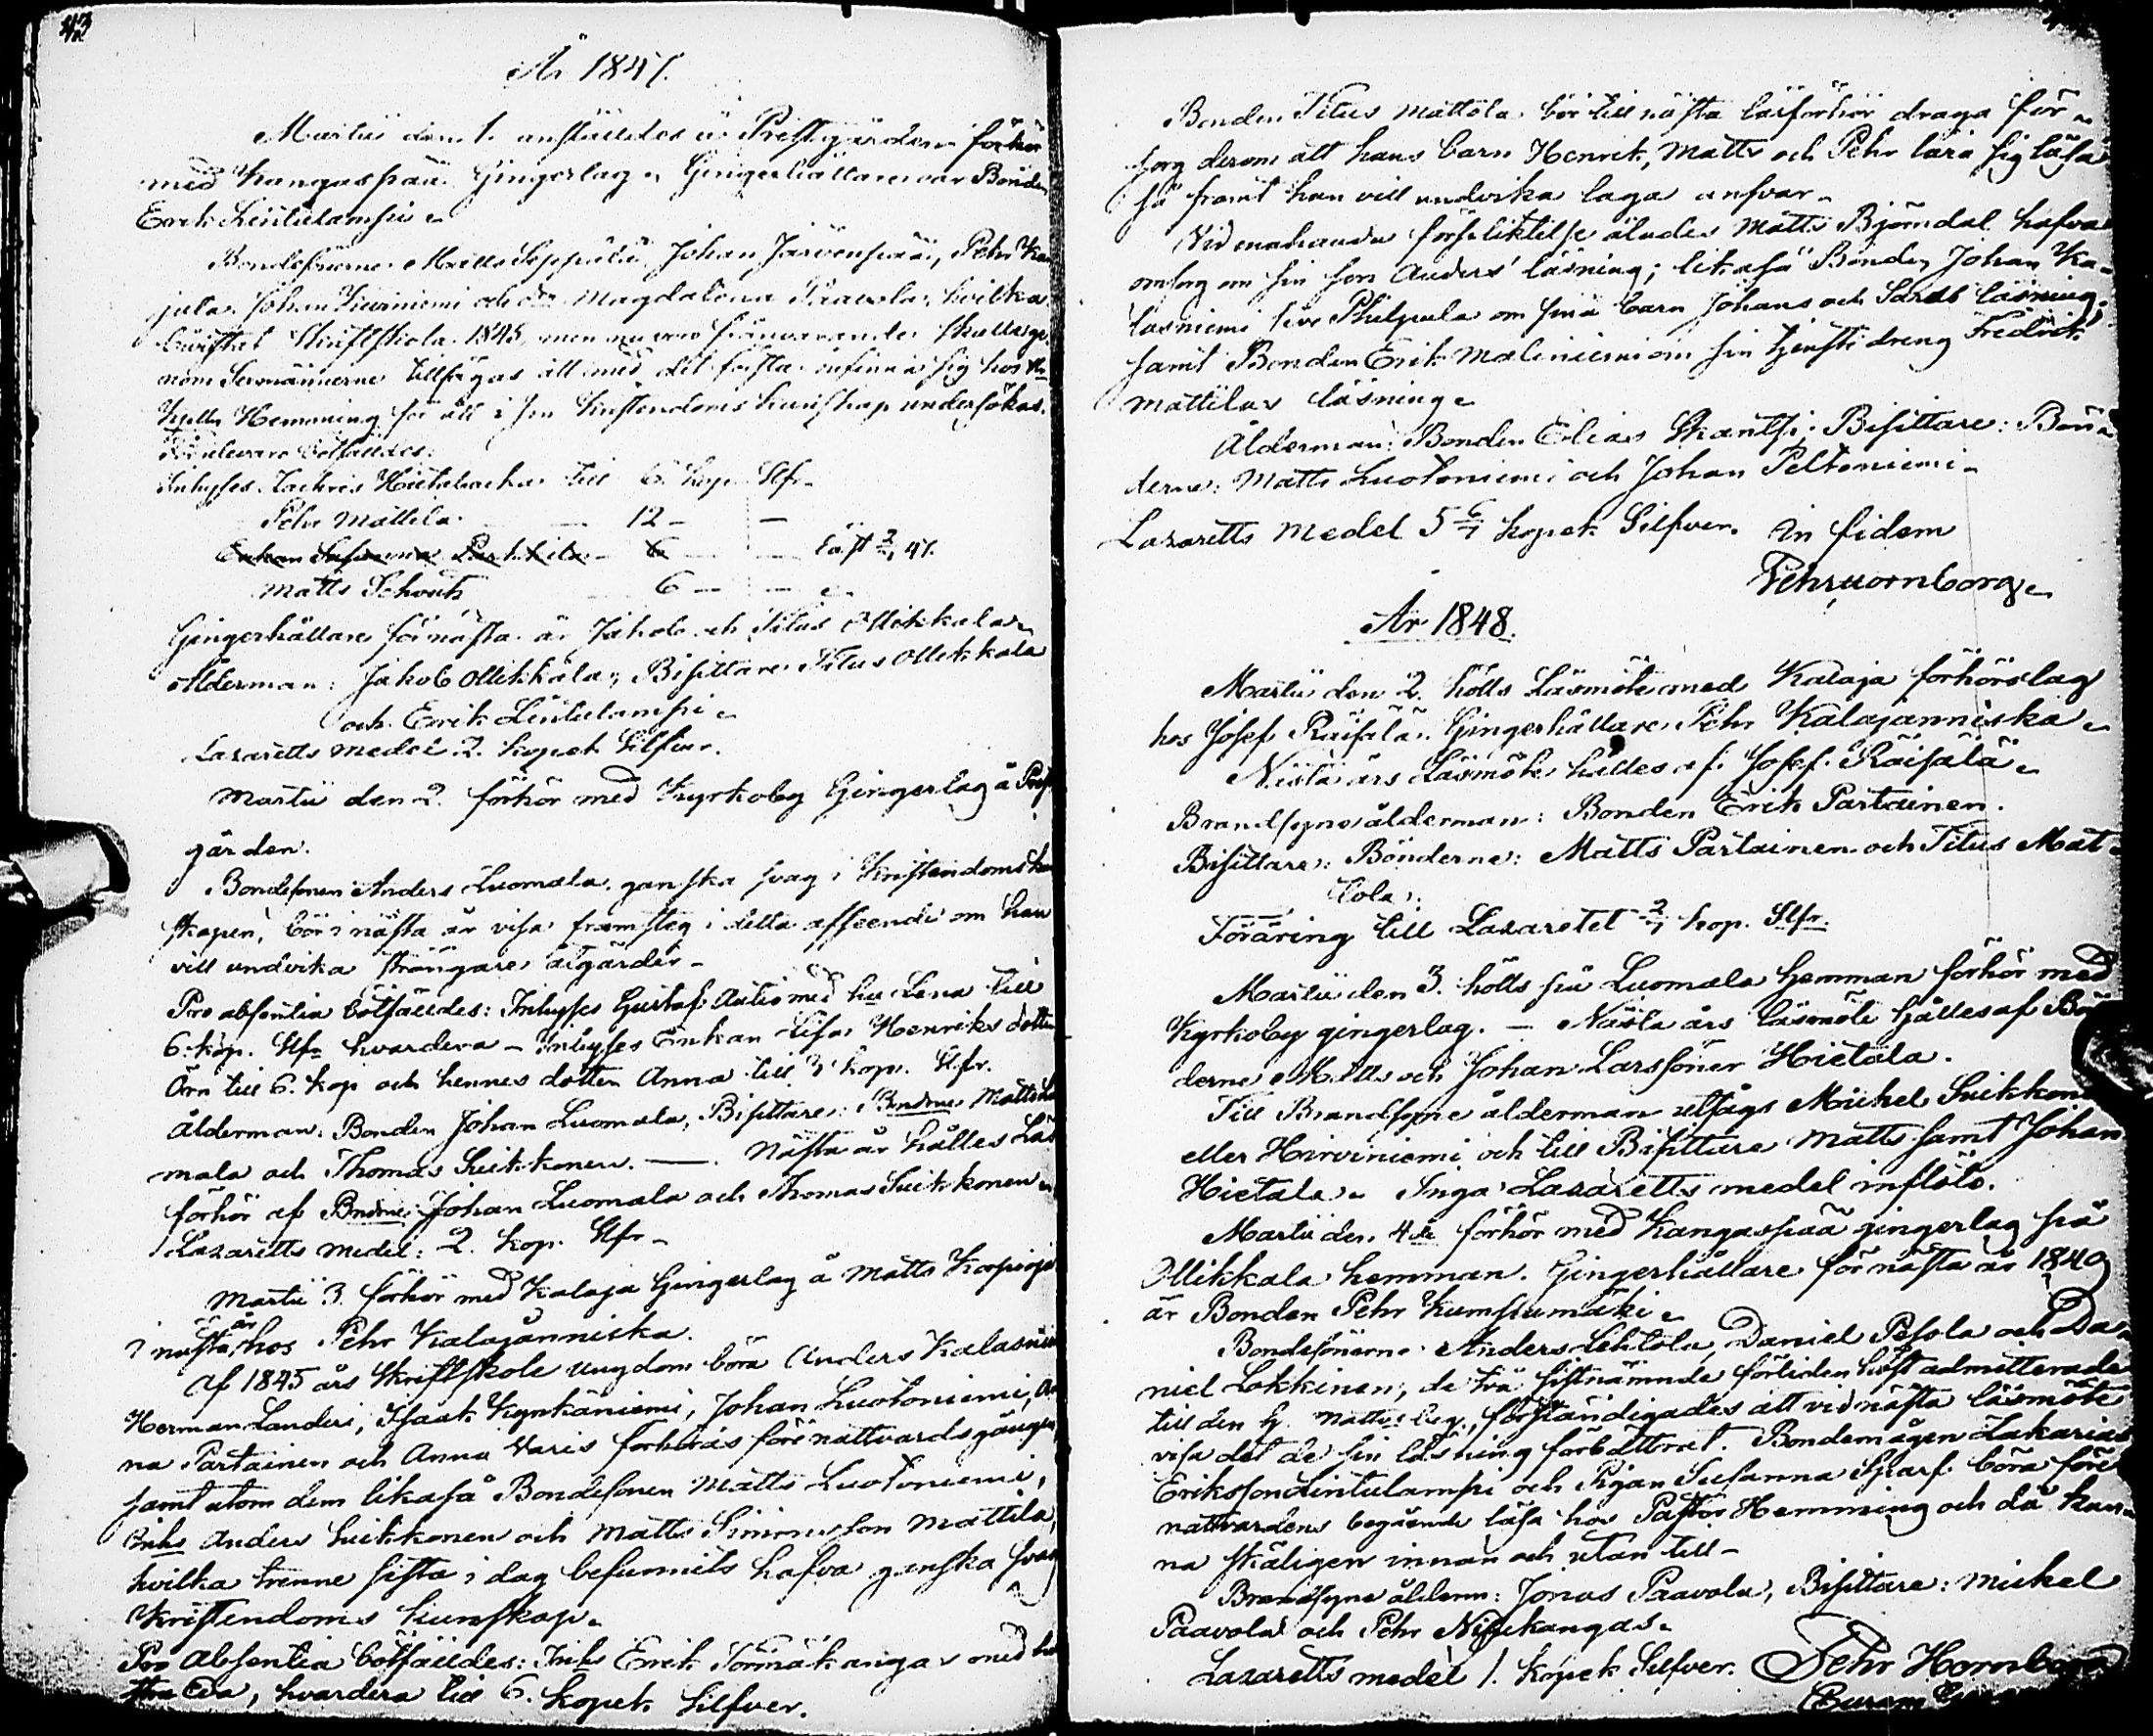 År 1847.
Martii den 1. anställdes å Prestgården förhör
med Kangaspää Gingerlag. Gingerhållare var Bonden
Erik Lintulampi.
Bondesönerne Matts Seppälä, Johan Järvenpää, Pehr
jula, Johan Kurniemi och Magdalena Paavola, hvilka
bevistat Skriftskola 1845, men nu voro frånvarande skulle ge-
nom Sexmännerne tillsägas att med det första infinna sig hos
Hemming för att i sin Kristendoms kunskap undersökas.
Frånvarande bötfälldes:
Inhyses Zachris Hietalachti till 6. kop. Slfr.
Pehr Mattila 12 —
Enkan Susanna Parkkila 6 — 47.
Matts Schouts 6 —
Gingerhållare för nästa år Jakob och Titus Ollikkala.
Ålderman: Jakob Ollikkala; Bisittare: Titus Ollikkala
och Erik Lintulampi.
Lazaretts medel 2. kopek Silfver.
Martii den 2. förhör med Kyrkoby Gingerlag å Prest-
gården.
Bondesonen Anders Luomala, ganska svag i Kristendoms
skapen, bör i nästa år visa framsteg i detta afseende om han
vill undvika strängare åtgärder.
Pro absentia bötfälldes: Inhyses Gustaf Autio med hu Lena till
6. kop. Slfr hvardera — inhyses Enkan Lisa Henriksdotter
Örn till 6. kop och hennes dotter Anna till 3 kop. Slfr.
Ålderman: Bonden Johan Luomala, Bisittare: Bönderne Matts Luo
mala och Thomas Suikkonen. — Nästa år hålles Läs
förhör af Bndrne: Johan Luomala och Thomas Suikkonen.
Lazaretts medel: 2. kop. Slfr.
Martii 3. förhör med Kalaja Gingerlag å Matts Korpioja
i nästa år hos Pehr Kalajanniska.
Af 1845 års Skriftskole ungdom böra Anders Kalasniemi
Herman Landers, Isaak Kynkäniemi, Johan Luotoniemi, An
na Partainen och Anna Varis förhöras före nattvardsgången,
samt utom dem likaså Bondesonen Matts Luotoniemi,
Inhs Anders Suikkonen och Matts Simonsson Mattila,
hvilka trenne sista i dag befunnits hafva ganska svag
Kristendoms kunskap.
Pro Absentia bötfälldes: Inhs Erik Törmäkangas med hu
stru Eva, hvardera till 6. kopek Silfver.
Bonden Titus Mattola bör till nästa läsförhör draga för-
sorg derom att hans barn Henrik, Matts och Pehr lära sig läsa
så framt han vill undvika laga ansvar.
Vid enahanda förpliktelse ålades Matts Björndal hafva
omsorg om sin son Anders' läsning; likaså Bonden Johan Ka-
lasniemi l. Philpula om sina barn Johans och Saras läsning,
samt Bonden Erik Maliniemi om sin tjenstedreng Fredrik
Mattilas läsning.
Ålderman: Bonden Elias Skantsi; Bisittare: Bön-
derne: Matts Luotoniemi och Johan Peltoniemi.
Lazaretts medel 5 6/7 kopek Silfver. in fidem
Pehr Hornborg.
År 1848.
Martii den 2. hölls Läsmöte med Kalaja förhörslag
hos Josef Räisälä. Gingerhållare Pehr Kalajanniska.
Nästa års Läsmöte hålles af Josef Räisälä.
Brandsyneålderman: Bonden Erik Partainen.
Bisittare: Bönderne: Matts Partainen och Titus Mat-
tola.
Föräring till Lazaretet 2/7 kop. Slfr.
Martii den 3. hölls på Luomala hemman förhör med
Kyrkoby gingerlag. — Nästa års läsmöte hålles af Bön
derne Matts och Johan Larssöner Hietala.
Till Brandsyne ålderman utsågs Mickel Suikkonen
eller Hirviniemi och till Bisittare Matts samt Johan
Hietala. Inga Lazaretts medel inflöto.
Martii den 4de förhör med Kangaspää gingerlag på
Ollikkala hemman. Gingerhållare för nästa år 1849
är Bonden Pehr Kumpumäki.
Bondesönerne Anders Lehtola, Daniel Pesola och Da-
niel Lokkinen, de två sistnämnde förliden höst admitterade
till den h. nattvarden, förständigades att vid nästa läsmöte
visa det de sin läsning förbättrat. Bondemågen Zakarias
Eriksson Lintulampi och Pigan Susanna Skarf böra före
nattvardens begående läsa hos Pastor Hemming och då kun-
na skäligen innan och utan till.
Brandsyne ålderm: Jonas Paavola, Bisittare: Mickel
Paavola och Pehr Niskakangas.
Lazaretts medel 1. kopek Silfver. Pehr Hornborg